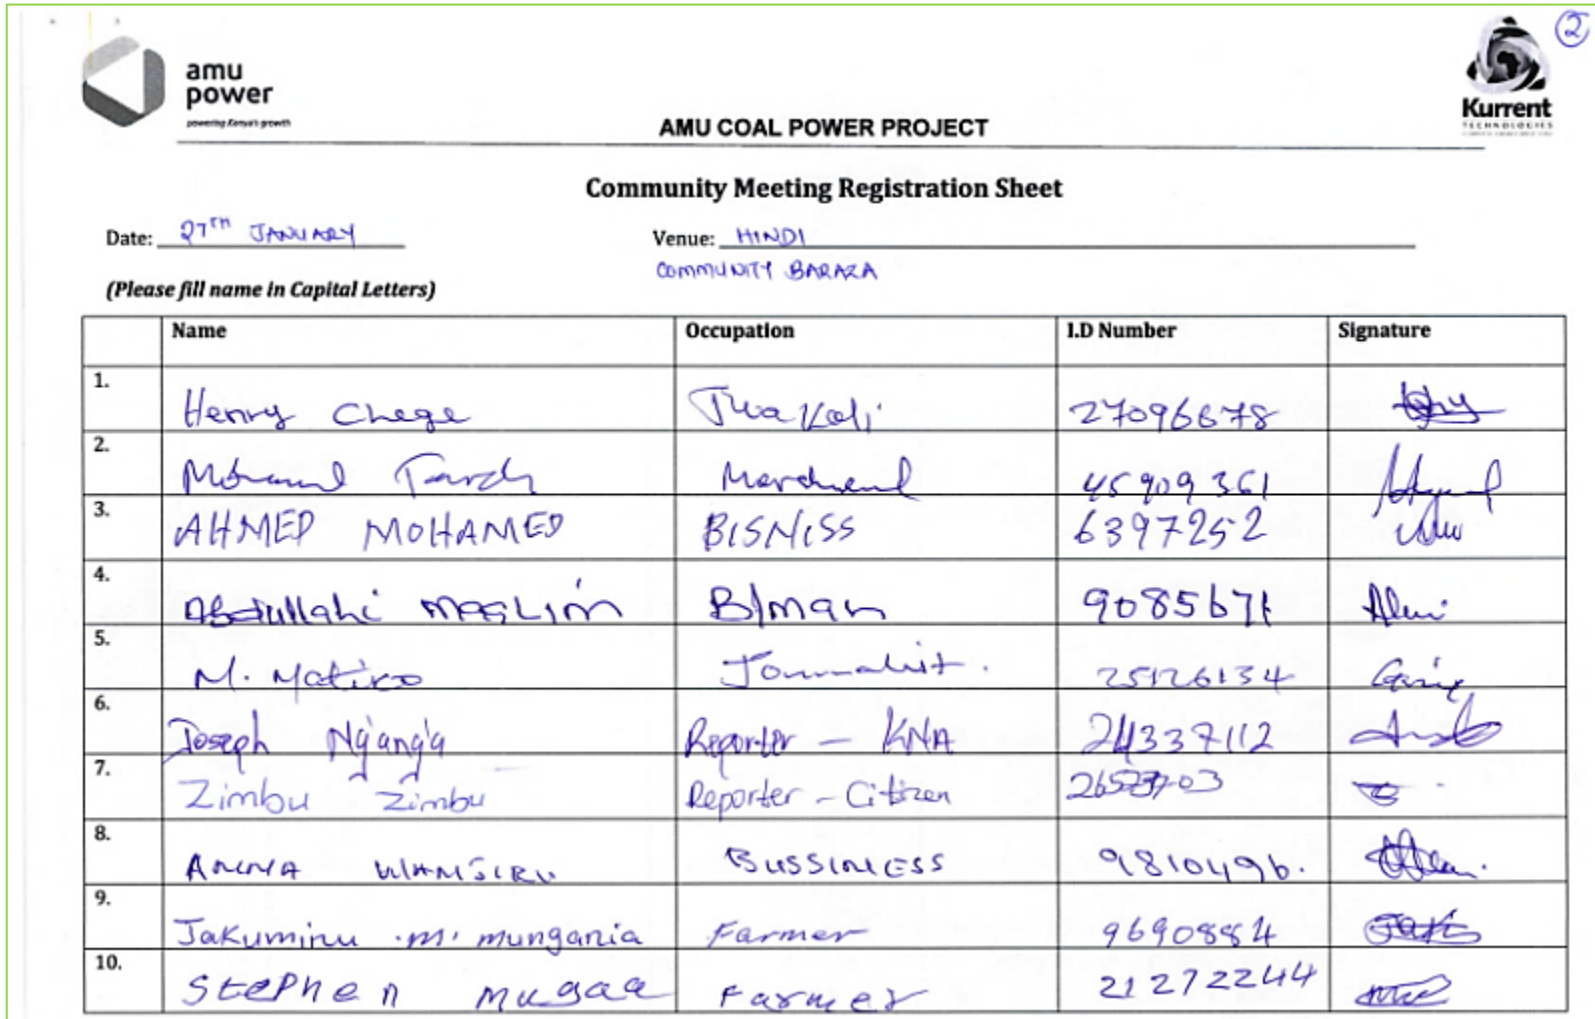 2
amu
power
powering Kenya's growth
Kurrent
TECHNOLOGIES
AMU COAL POWER PROJECT
Community Meeting Registration Sheet
Date: 27TH JANUARY Venue: HINDI
COMMUNITY BARAZA
(Please fill name in Capital Letters)
Name Occupation I.D Number Signature
1. Henry Chege Jua Kali 27096678
2. 45909361
3. AHMED MOHAMED BISNISS 6397252
4. Abdullahi MAALIM B/man 9085671
5. M. Matiko Journalist. 25126134
6. Joseph Ng'ang'a Reporter - KNA 24337112
7. Zimbu Zimbu Reporter - Citizen
8. ANNA WANJIRU BUSSINESS 9810496.
9. Jakuminu .M. mungania Farmer 9690884
10. StePhen mugaa Farmer 21272244